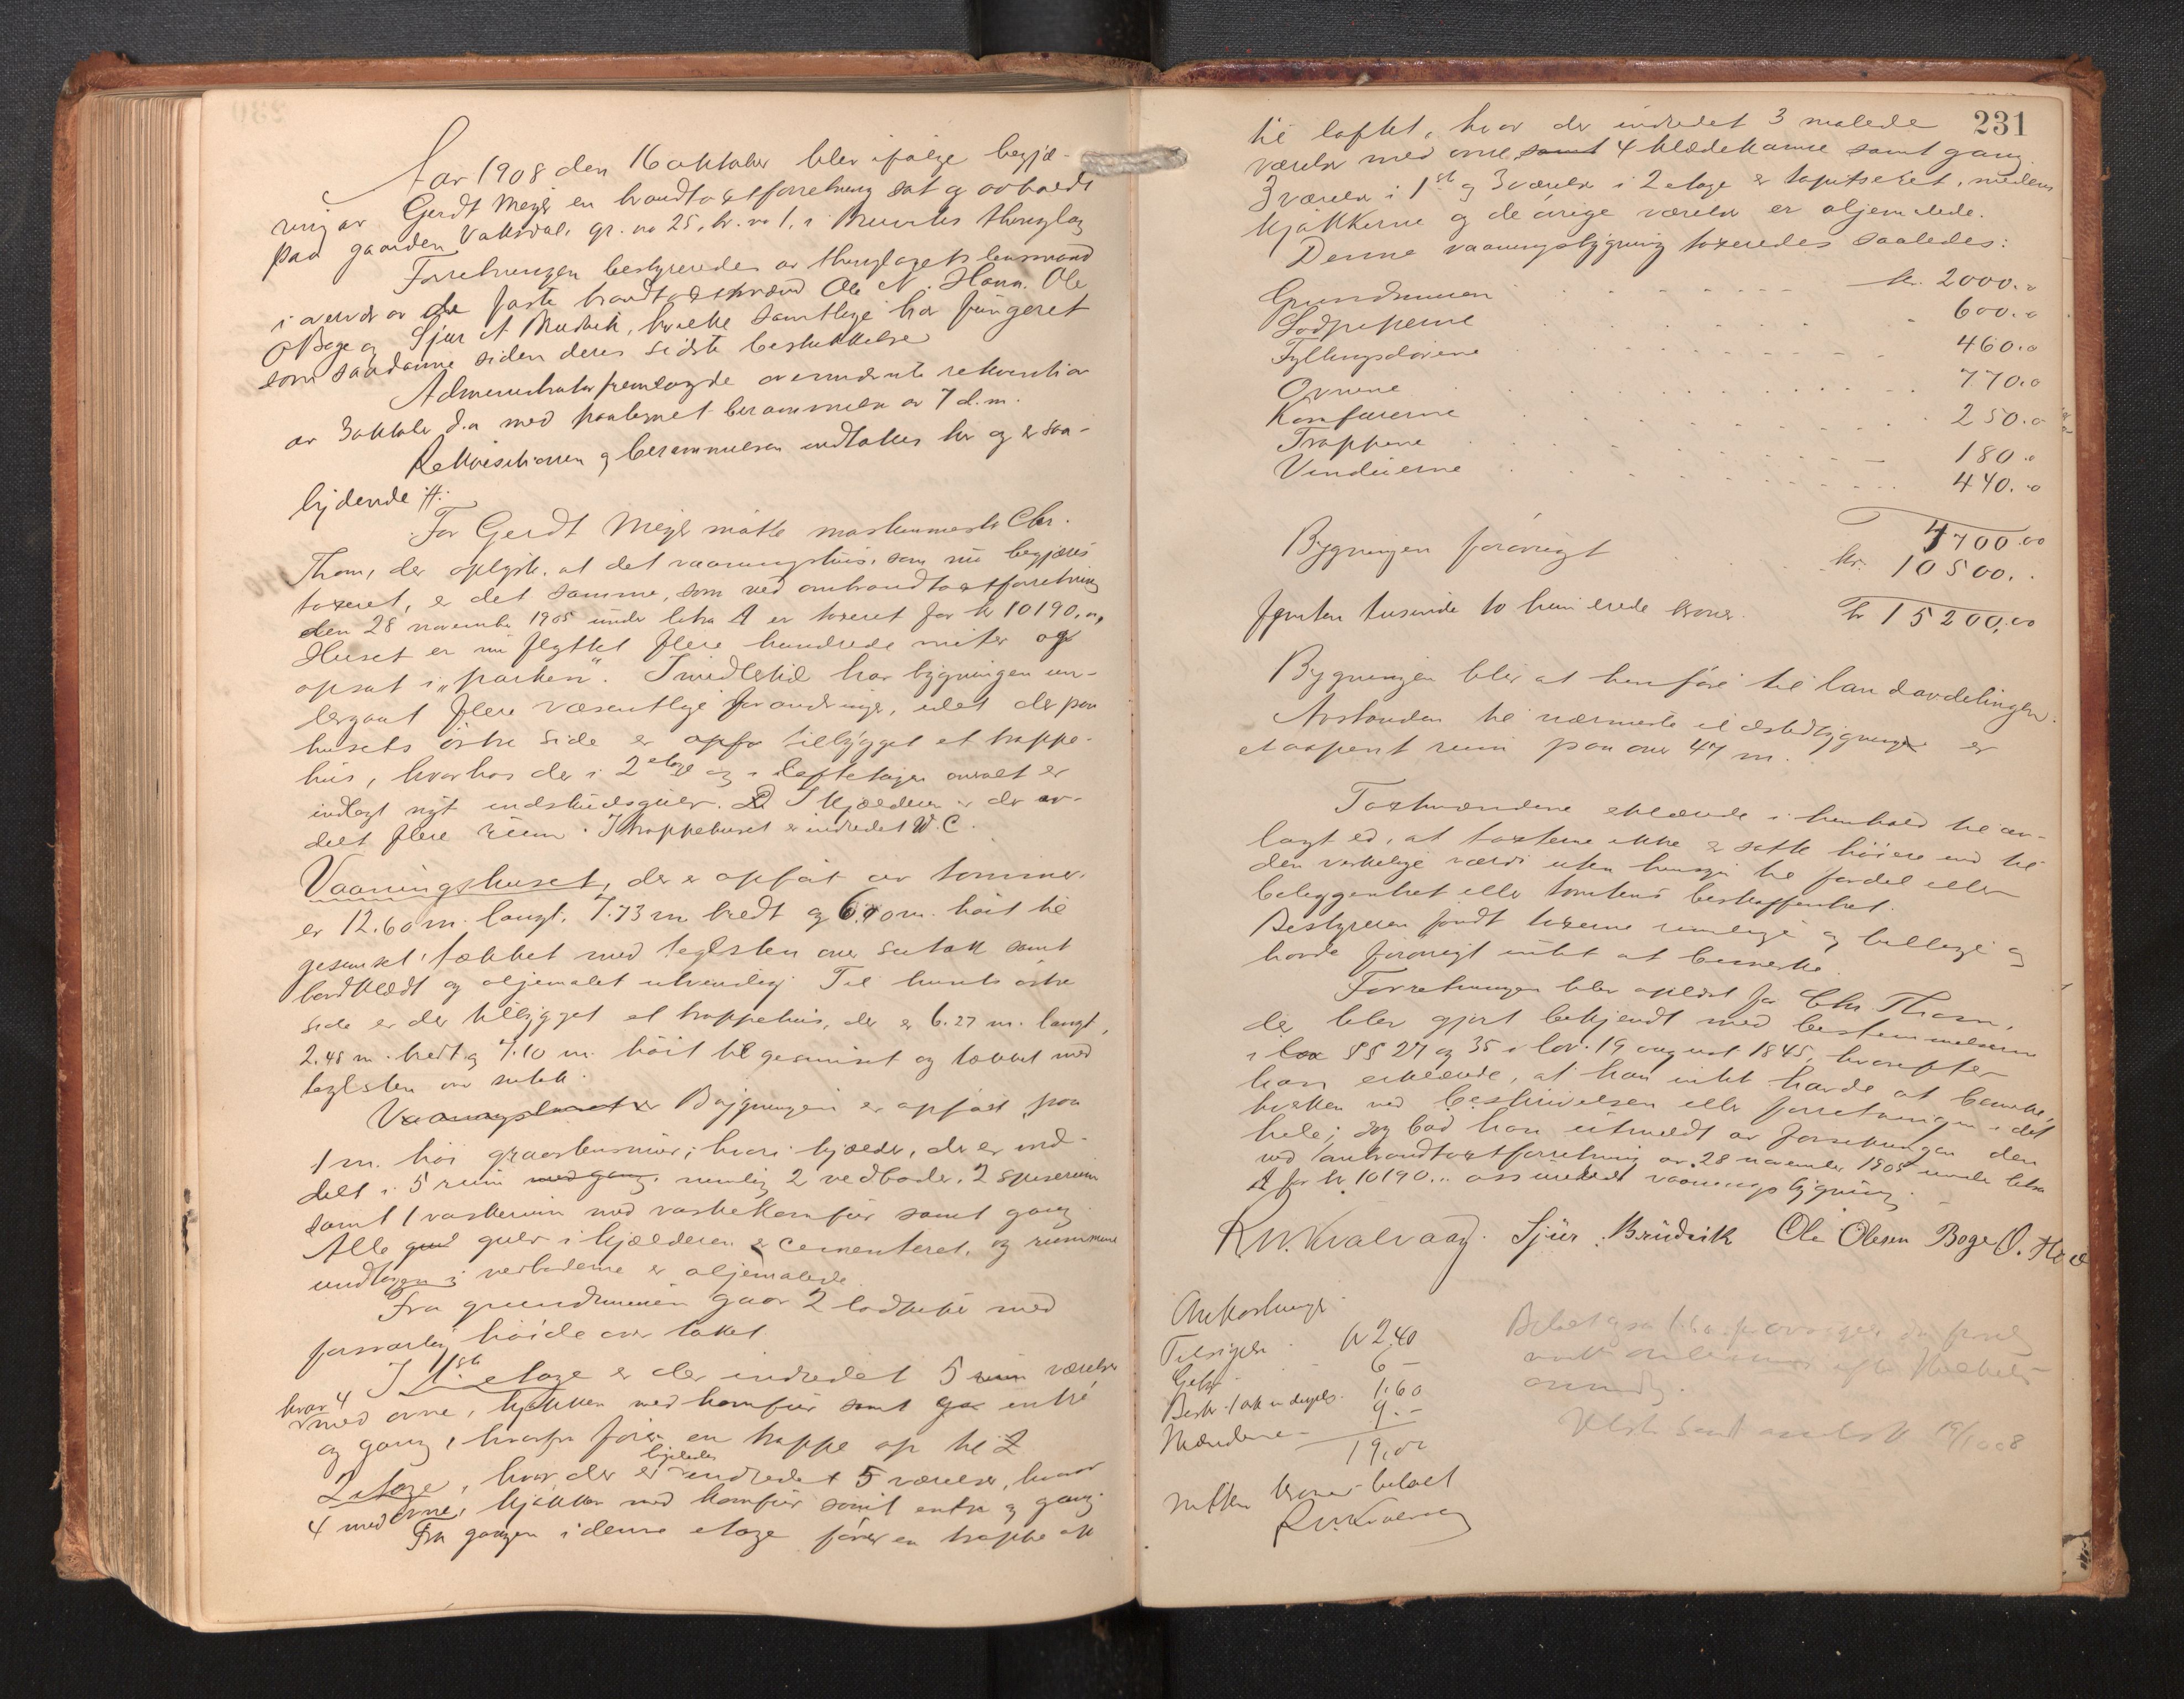 Aar 1908 den 16 oktober blev ifølge begjæ-
ring av Gerdt Meyer en brandtaxtforretning sat og avholdt
paa gaarden Vaksdal, gr. no 25, br. no 1, i Bruviks thinglag
Forretningen bestyredes av thinglagets lensmand
i overvær av de faste brandtaxtmænd Ole N. Hana. Ole
O Boge og Sjur A Bruvik, hvilke samtlige har fungeret
som saadanne siden deres sidste beskikkelse
Administrator fremlagde overnævnte rekvisition
av 3 oktober d.a med paategnet berammelse av 7 d.m.
Rekvisitionen og berammelsen indtages her og er saa-
lydende :#:
For Gerdt Meyer møtte maskinmester Chr.
Thom, der oplyste, at det vaaningshus, som nu begjæres
taxeret, er det samme, som ved ombrandtaxtforretning
den 28 november 1905 under litra A er taxeret for kr 10190.00,
Huset er nu flyttet flere hundrede meter og
opsat i "parken". Imidlertid har bygningen un-
dergaat flere væsentlige forandringer, idet der paa
husets østre side er opfø tilbygget et trappe-
hus, hvorhos der i 2 etage og i loftetagen overalt er
indlagt nyt indskudsgulv. D I kjælderen er der av-
delt flere rum. I trappehuset er indredet W.C.
Vaaningshuset, der er opført av tømmer,
er 12.60 m. langt, 7.73 m bredt og 6.90 m. høit til
gesimset, tækket med teglsten over sutak samt
bordklædt og oljemalet utvendig Til husets østre
side er der tilbygget et trappehus, der er 6.27 m. langt,
2.48 m. bredt og 7.10 m. høit til gesimset og tækket med
teglsten over sutak.
Vaaningshuset er Bygningen er opført paa
1 m. høi graastensmur, hvori kjælder, der er ind-
delt i 5 rum med gang, nemlig 2 vedboder, 2 spiserum
samt 1 vaskerum med vaskekomfur samt gang
Alle gul gulv i kjælderen er cementeret, og rummene
undtagen i vedboderne er oljemalede.
Fra grundmuren gaar 2 lodpiper med
forsvarlig høide over taket
I 1ste etage er der indredet 5 rum værelser
hvor 4
med ovne, kjøkken med komfur samt ga entré
og gang, hvorfra fører en trappe op til 2
ligeledes
2 etage, hvor der er indredet 5 værelser, hvor
4 med ovne, kjøkken med komfur samt entre og gang.
Fra gangen i denne etage fører en trappe op
231
til loftet, hvor der indredet 3 malede
værelser med ovne, samt 4 klædekamre samt gang.
3 værelser i 1ste og 3 værelser i 2 etage er tapitseret, medens
kjøkkerne og de øvrige værelser er oljemalede.
Denne vaaningsbygning taxeredes saaledes:
Grundmuren kr. 2000.00
Lodpiperne 600.00
Fyllingsdørene 460.00
Ovnene 770.00
Komfurerne 250.00
Trappene 180.00
Vinduerne 440.00
4700.00
Bygningen forøvrigt kr. 10500.
Femten tusinde to hundrede kroner. kr 15200.00
Bygningen blir at henføre til landavdelingen.
Avstanden til nærmeste ildstedbygning er
et aapent rum paa over 47 m.
Taxtmændene erklærede i henhold til av-
lagt ed, at taxterne ikke er satte høiere end til
den virkelige værdi uten hensyn til fordel eller
beleggenhet eller tomtens beskaffenhet.
Bestyreren fandt taxterne rimelige og billige og
havde forøvrigt intet at bemerke.
Forretningen blev oplæst for Chr. Thom,
der blev gjort bekjendt med bestemmelserne
i lov §§ 27 og 35 i lov. 19 august 1845, hvorefter
han erklærede, at han intet havde at bemerke,
hverken ved beskrivelsen eller forretningen i det
hele; dog bad han utmeldt av forsikringen den
ved ombrandtaxtforretning av 28 november 1905 under litra
A for kr 10190.. assurerede vaaningsbygning.
R W. Kvalvaag. Sjur Bruvik Ole Olesen Boge O. Ha
Omkostninger
Tilsigelse kr 2.40
Gebyr 6 -
1.60
Mændene 9.-
19.00
nitten kroner betalt
R W. Kvalvaag